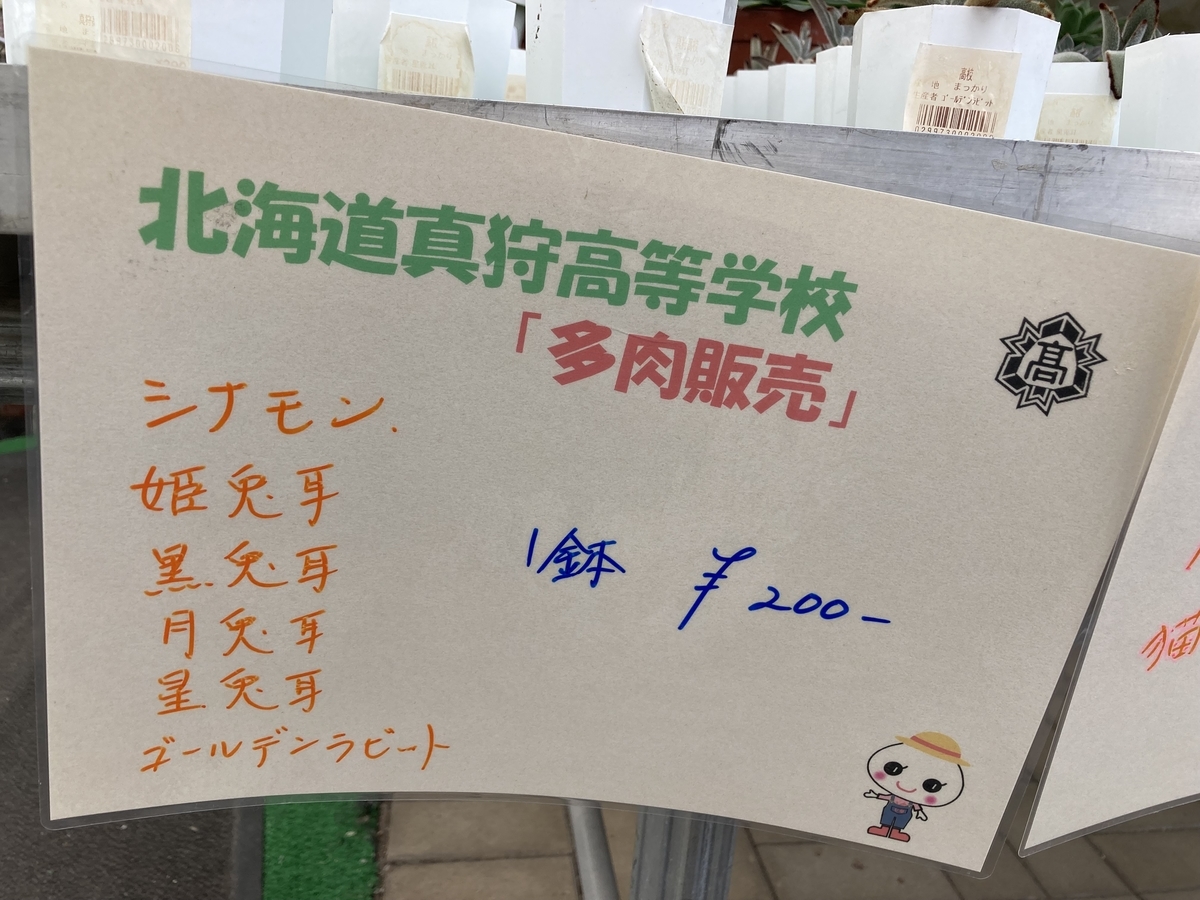 高校
まっかり
生産者 ゴールデンラビット
北海道真狩高等学校
「多肉販売」
高
シナモン.
姫兎耳
黒兎耳
月兎耳
星兎耳
ゴールデンラビート
1鉢 ¥200-
猫